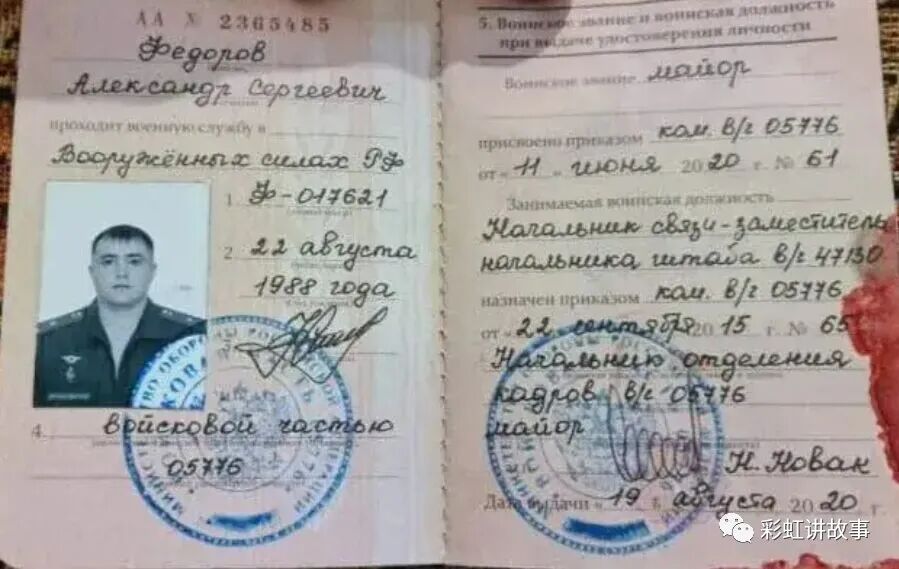 АА № 2365485
Федоров
Александр Сергеевич
проходит военную службу в
Вооружённых силах РФ
1. Ф-017621
2. 22 августа
1988 года
4. войсковой частью
05776
5. Воинское звание и воинская должность
при выдаче удостоверения личности
Воинское звание майор
присвоено приказом ком. в/г 05776
от « 11 » июня 2020 г. № 61
Занимаемая воинская должность
Начальник связи-заместитель
начальника штаба в/г 47130
назначен приказом ком. в/г 05776
от « 22 сентября 2015 г. № 65
Начальник отделения
кадров в/г 05776
майор
Н. Новак
Дата выдачи « 19 » августа 2020 г.
彩虹讲故事